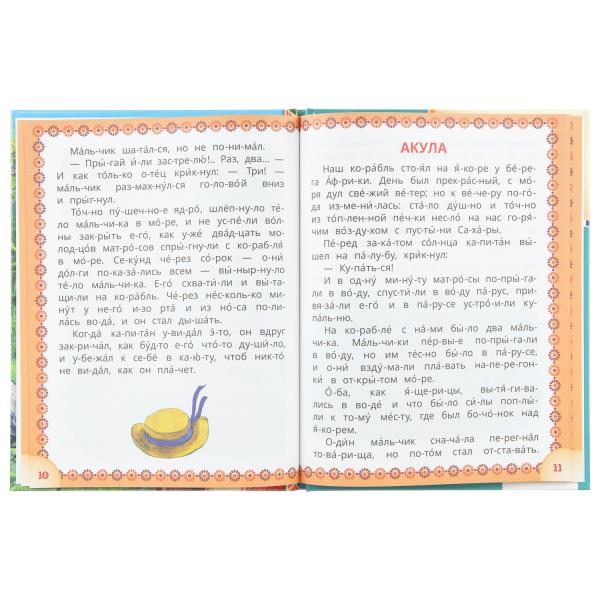 Ма́ль-чик ша-та́л-ся, но не по-ни-ма́л.
— Пры́-гай и́-ли за-стре-лю́!.. Раз, два... —
И как то́ль-ко о-те́ц кри́к-нул: — Три! —
ма́ль-чик раз-мах-ну́л-ся го-ло-во́й вниз
и пры́г-нул.
То́ч-но пу́-шеч-но-е яд-ро́, шлёп-ну́-ло те́-
ло ма́ль-чи-ка в мо́-ре, и не ус-пе́-ли во́л-
ны зак-ры́ть е-го́, как у-же́ два́д-цать мо-
лод-цо́в мат-ро́-сов спры́г-ну-ли с ко-раб-ля́
в мо́-ре. Се-ку́нд че́-рез со́-рок — о-ни́
до́л-ги по-ка-за́-лись всем — вы́-ныр-ну-ло
те́-ло ма́ль-чи-ка. Е-го́ схва-ти́-ли и вы́-та-
щи-ли на ко-ра́бль. Че́-рез не́с-коль-ко ми-
ну́т у не-го́ и-зо рта́ и из но́-са по-ли-
ла́сь во-да́, и он стал ды-ша́ть.
Ког-да́ ка-пи-та́н у-ви-дал э́-то, он вдруг
зак-ри-ча́л, как бу́д-то е-го́ что-то ду-ши́-ло,
и у-бе-жа́л к се-бе́ в ка-ю́-ту, чтоб ник-то́
не ви-да́л, как он пла́-чет.
10
АКУЛА
Наш ко-ра́бль сто-я́л на я́-ко-ре у бе́-ре-
га А́ф-ри-ки. День был прек-ра́с-ный, с мо́-
ря дул све́-жий ве́-тер; но к ве́-че-ру по-го́-
да из-ме-ни́-лась: ста́-ло ду́ш-но и то́ч-но
из то́п-лен-ной пе́ч-ки нес-ло́ на нас го-ря́-
чим во́з-ду-хом с пус-ты́-ни Са-ха́-ры.
Пе́-ред за-ка́-том со́лн-ца ка-пи-та́н вы́-
шел на па́-лу-бу, кри́к-нул:
— Ку-па́ть-ся!
И в од-ну́ ми-ну́-ту мат-ро́-сы по-пры́-га-
ли в во́-ду, спус-ти́-ли в во́-ду па́-рус, при-
вя-за́-ли е-го́ и в па́-ру-се ус-тро́-и-ли ку-
па́ль-ню.
На ко-раб-ле́ с на́-ми бы́-ло два ма́ль-
чи-ка. Ма́ль-чи-ки пе́р-вы-е по-пры́-га-ли
в во́-ду, но им те́с-но бы́-ло в па́-ру-се,
и о-ни́ взду́-ма-ли пла́-вать на-пе-ре-гон-
ки́ в от-кры́-том мо́-ре.
О́-ба, как я́-ще-ри-цы, вы-тя́-ги-ва-
лись в во-де́ и что бы́-ло си́-лы поп-лы́-
ли к то-му́ ме́с-ту, где был бо-чо́-нок над
я́-ко-рем.
О-ди́н ма́ль-чик сна-ча́-ла пе-рег-на́л
то-ва́-ри-ща, но по-то́м стал от-ста-ва́ть.
11